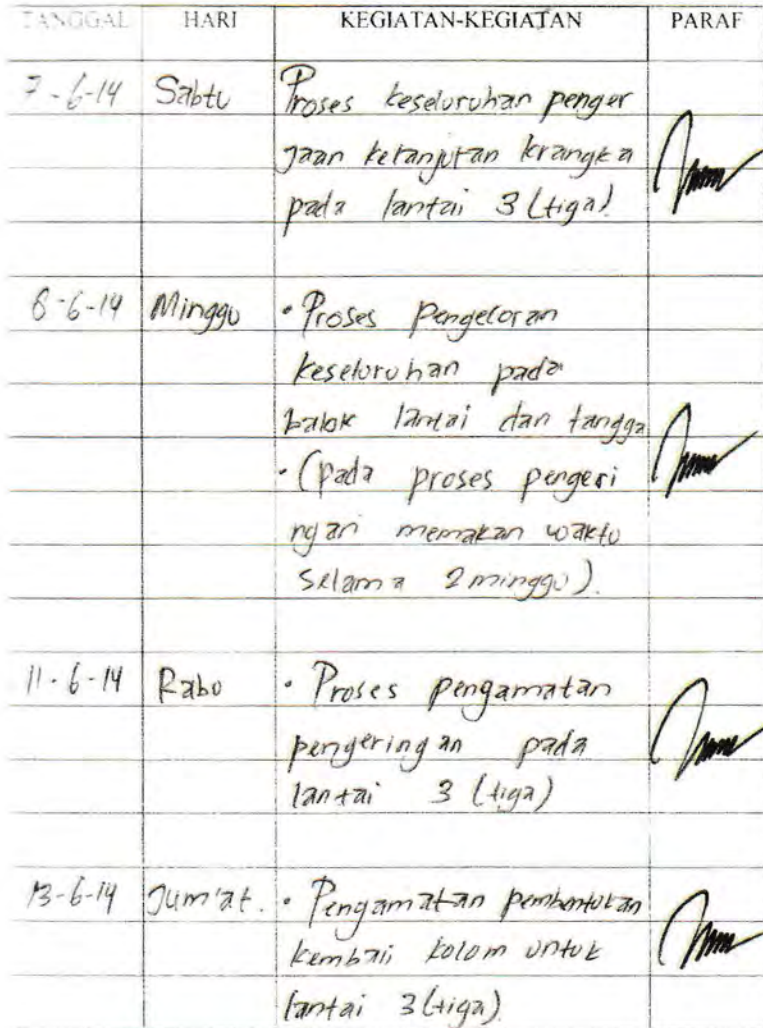 TANGGAL HARI KEGIATAN-KEGIATAN PARAF
7-6-14 Sabtu Proses keseluruhan penger
jaan kelanjutan krangka
pada lantai 3 (tiga).
8-6-14 Minggu • Proses Pengecoran
keseluruhan pada
balok lantai dan tangga
• (pada proses pengeri
ngan memakan waktu
selama 2 minggu).
11-6-14 Rabu • Proses pengamatan
pengeringan pada
lantai 3 (tiga)
13-6-14 Jum'at. • Pengamatan pembentukan
kembali kolom untuk
lantai 3 (tiga)